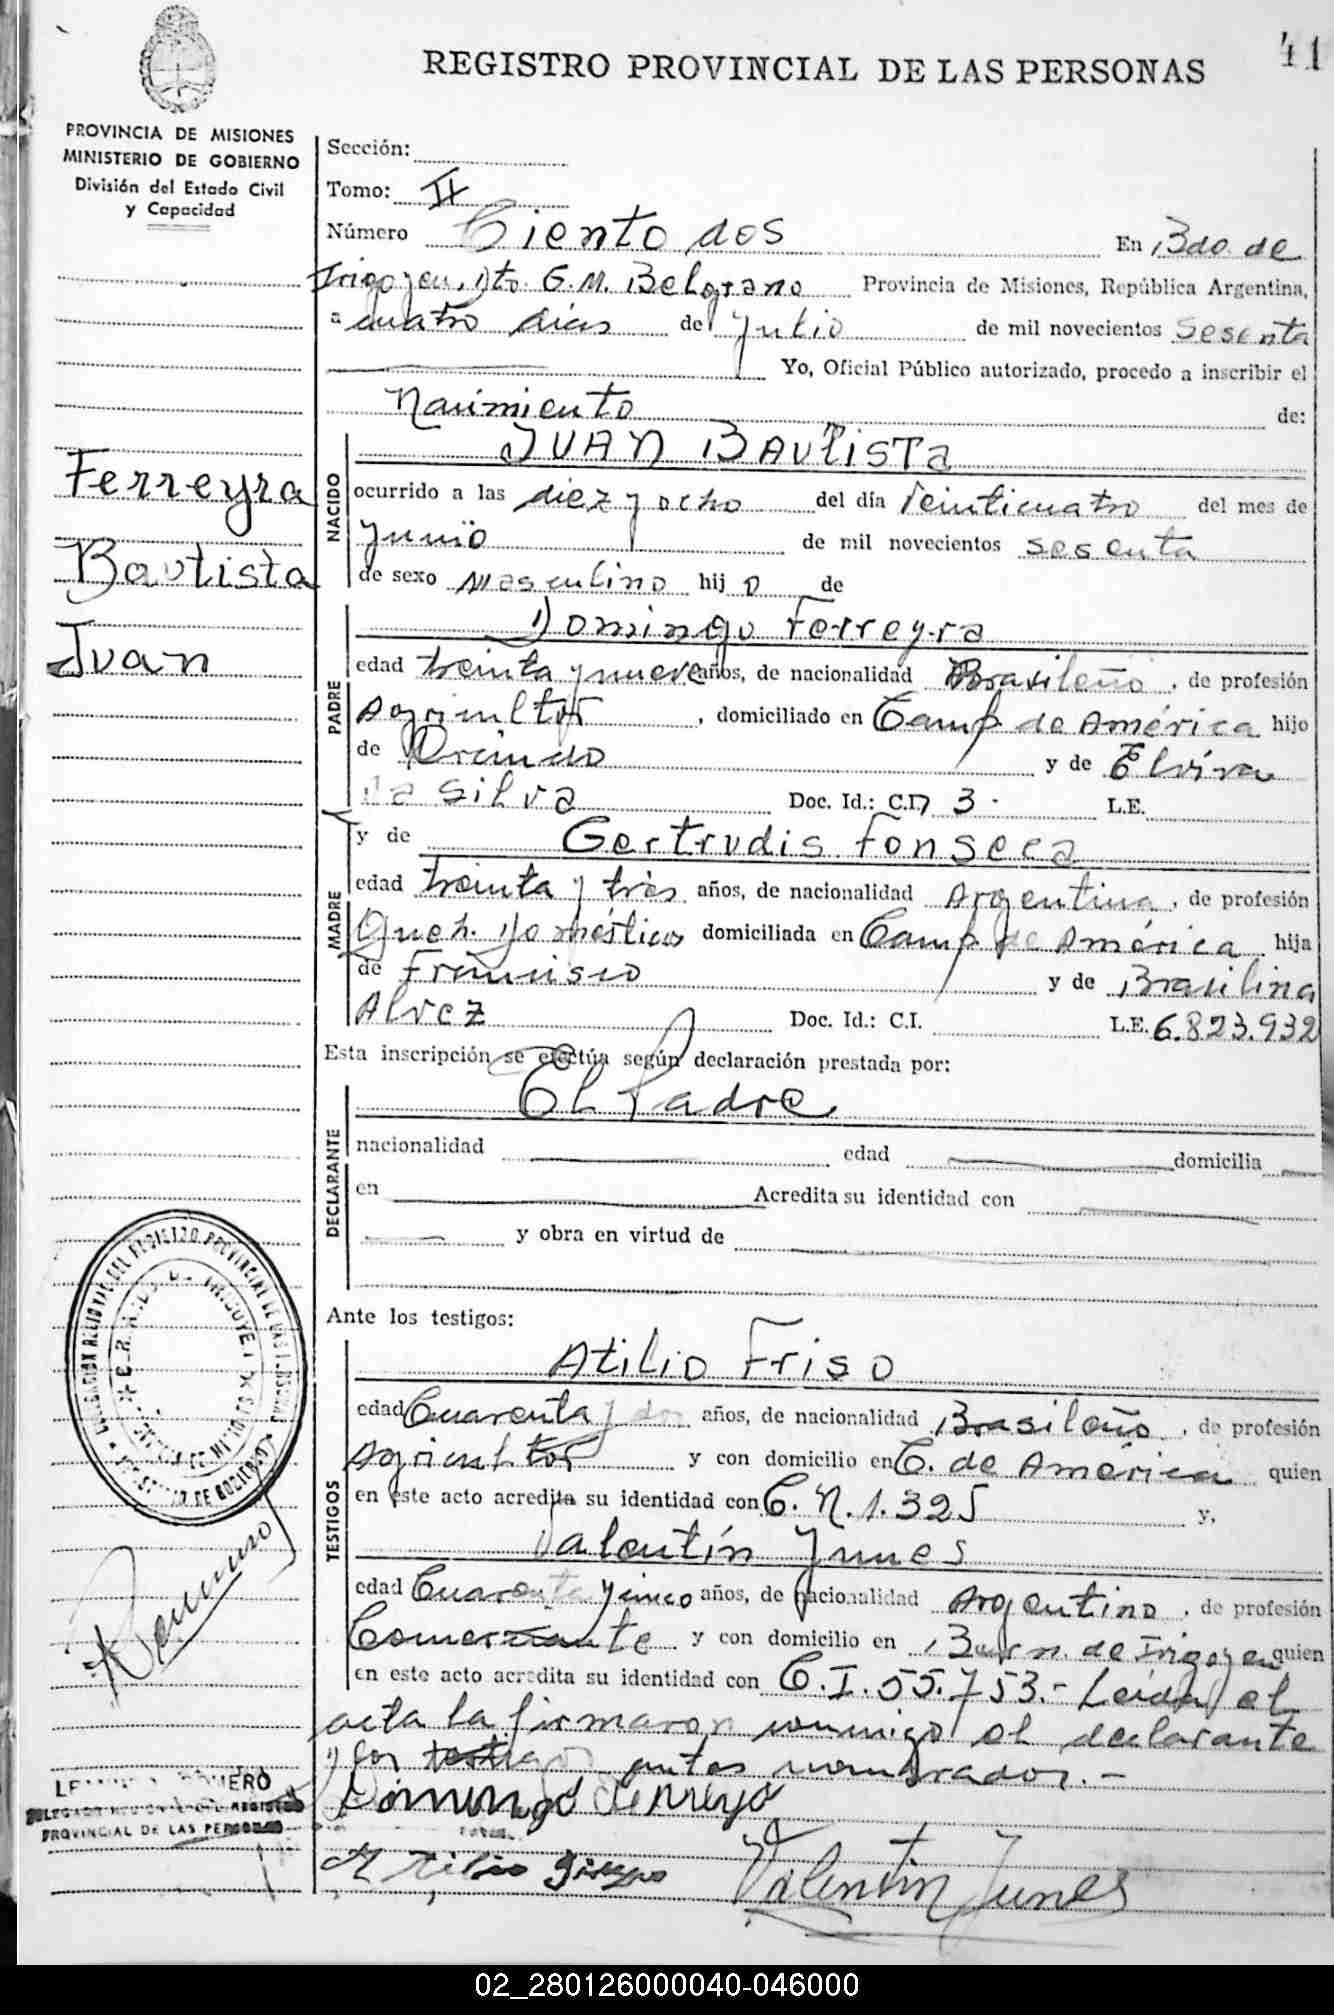 41
REGISTRO PROVINCIAL DE LAS PERSONAS
PROVINCIA DE MISIONES
MINISTERIO DE GOBIERNO
División del Estado Civil
y Capacidad
Sección:
Tomo: II
Número Ciento dos En Bdo. de
Irigoyen, Dto. G. M. Belgrano Provincia de Misiones, República Argentina,
a cuatro días de Julio de mil novecientos Sesenta
Yo, Oficial Público autorizado, procedo a inscribir el
Nacimiento de:
Ferreyra
Bautista
Juan
NACIDO
JUAN BAUTISTA
ocurrido a las diez y ocho del día Veinticuatro del mes de
Junio de mil novecientos sesenta
de sexo Masculino hij o de
PADRE
Domingo Ferreyra
edad treinta y nueve años, de nacionalidad Brasileño, de profesión
Agricultor, domiciliado en Camp. de América hijo
de y de Elvira
da Silva Doc. Id.: C.I. 3. L.E.
MADRE
y de Gertrudis Fonseca
edad treinta y tres años, de nacionalidad Argentina, de profesión
Queh. Domésticos domiciliada en Camp. de América hija
de Francisco y de Brasilina
Alvez Doc. Id.: C.I. L.E. 6.823.932
Esta inscripción se efectúa según declaración prestada por:
DECLARANTE
El Padre
nacionalidad edad domicilia
en Acredita su identidad con
y obra en virtud de
Ante los testigos:
TESTIGOS
Atilio Friso
edad Cuarenta y dos años, de nacionalidad Brasileño, de profesión
Agricultor y con domicilio en C. de América quien
en este acto acredita su identidad con C. N. 1.325 y,
Valentín Junes
edad Cuarenta y cinco años, de nacionalidad Argentino, de profesión
Comerciante y con domicilio en Bern. de Irigoyen quien
en este acto acredita su identidad con C.I. 55.753.- Leída el
acta la firmaron conmigo el declarante
y los testigos antes nombrados.-
Domingo Ferreyra
Valentin Junes
ROMERO
PROVINCIAL DE LAS PERSONAS
02_280126000040-046000